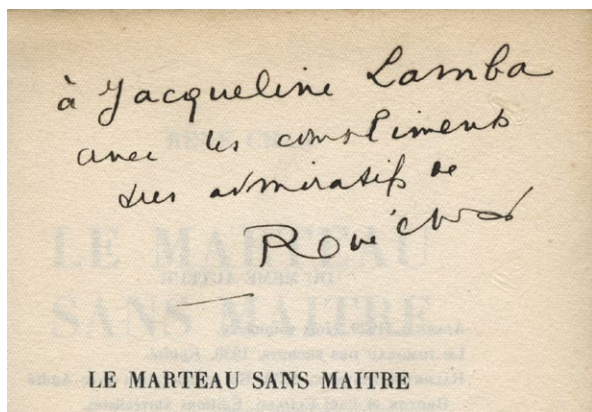 à Jacqueline Lamba
avec les compliments
très admiratifs de
René Char
LE MARTEAU SANS MAITRE